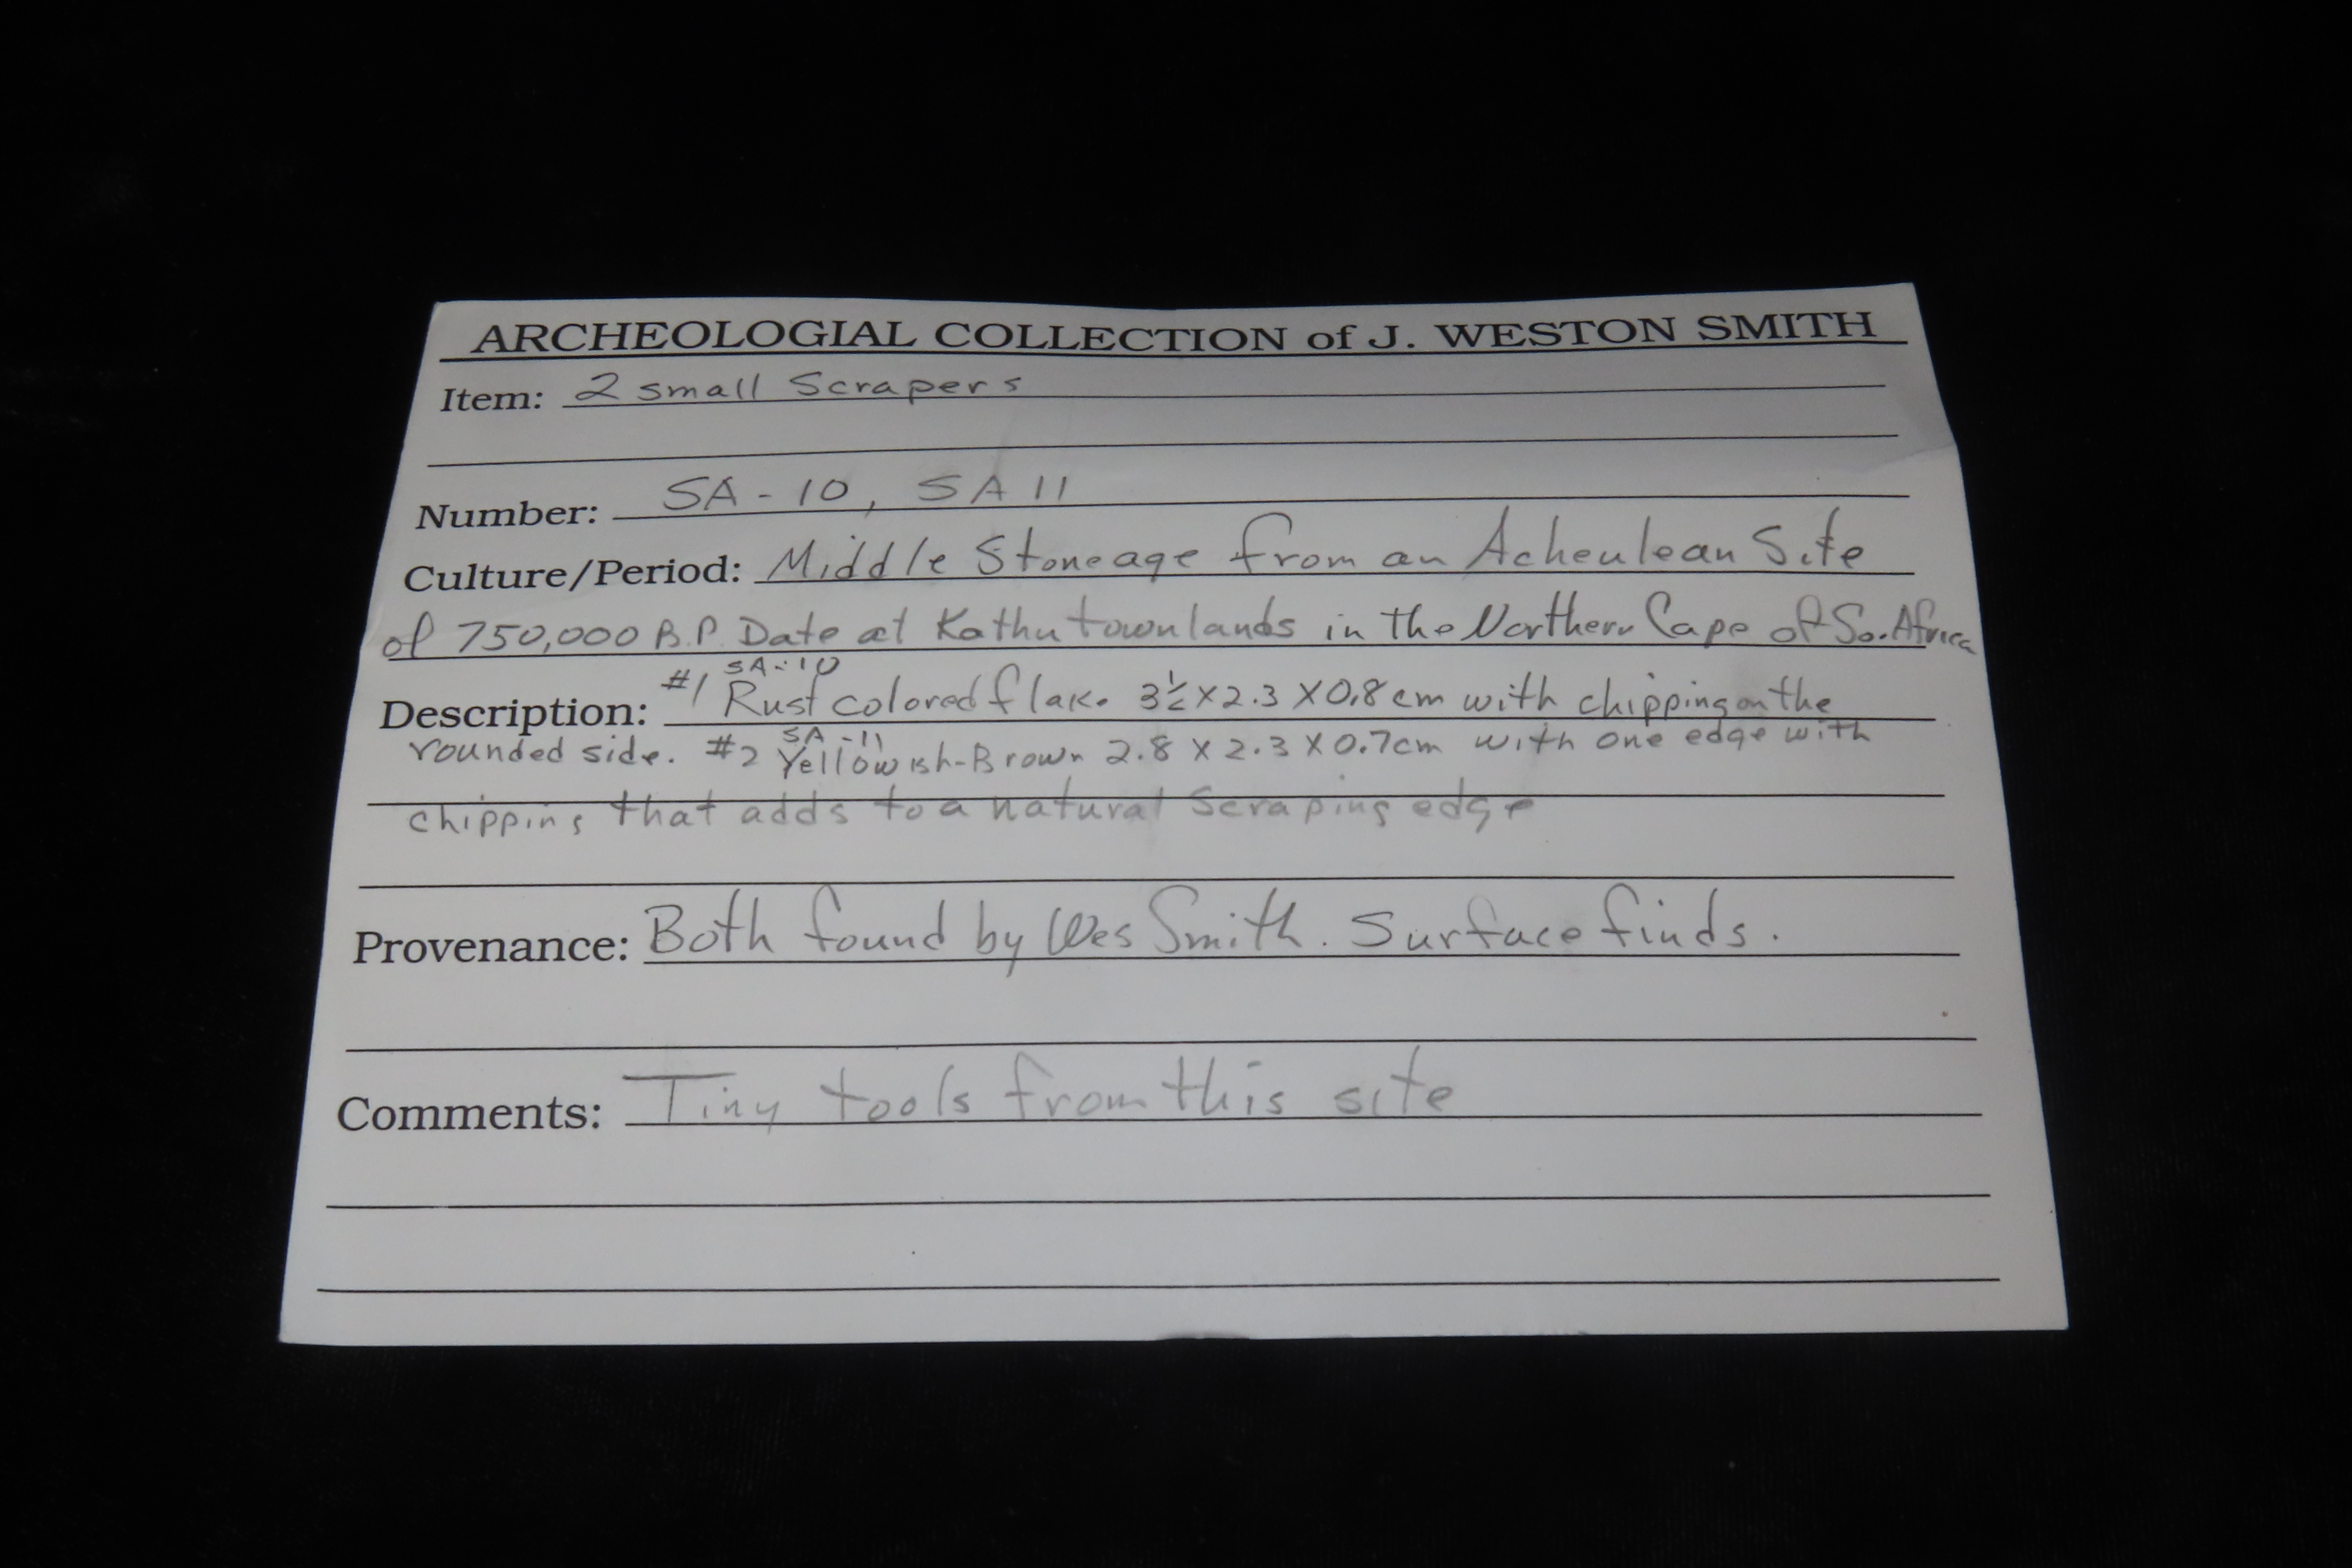 ARCHEOLOGIAL COLLECTION of J. WESTON SMITH
Item: 2 small Scrapers
Number: SA-10, SA 11
Culture/Period: Middle Stoneage from an Acheulean Site
of 750,000 B.P. Date at Kathu townlands in the Northern Cape of So. Africa
SA-10
Description: #1 Rust colored flake 3½ X 2.3 X 0.8 cm with chipping on the
SA-11
rounded side. #2 Yellowish-Brown 2.8 X 2.3 X 0.7cm with one edge with
chipping that adds to a natural Scraping edge
Provenance: Both found by Wes Smith. Surface finds.
Comments: Tiny tools from this site